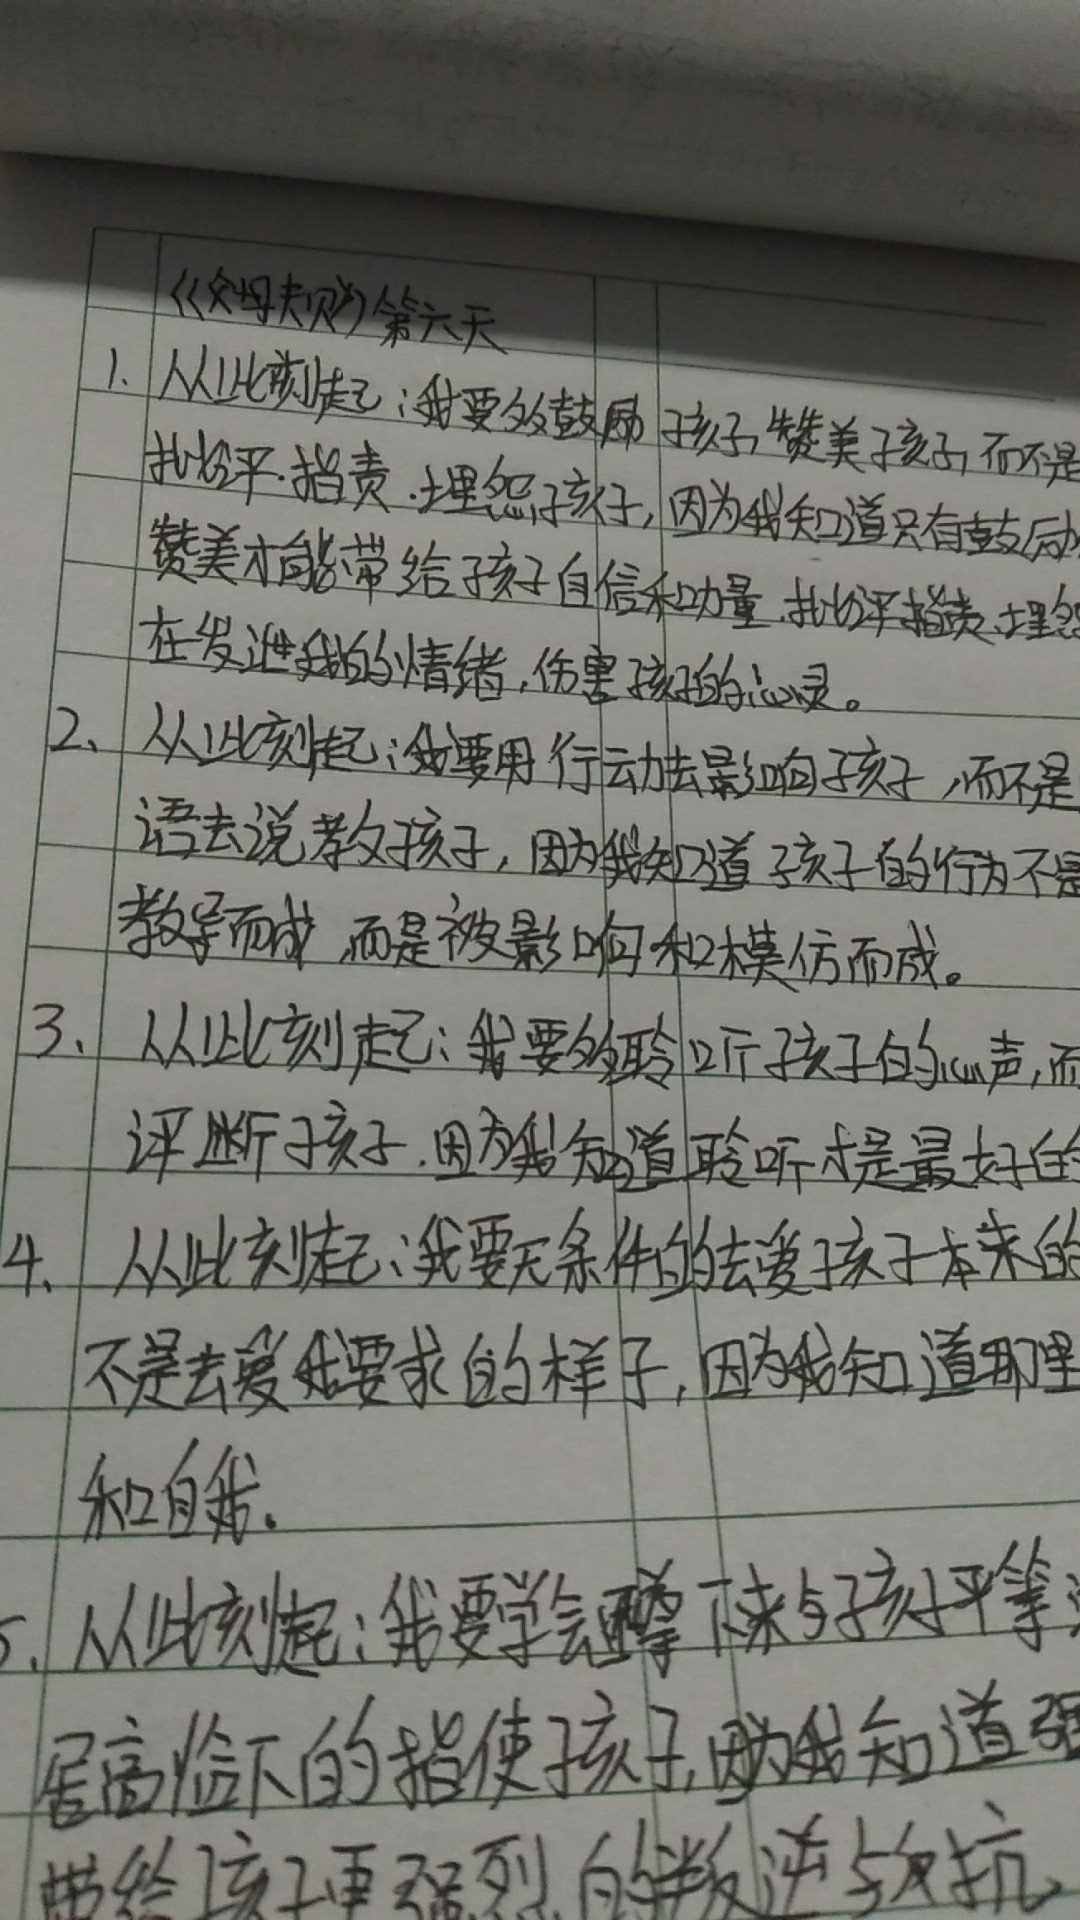 《父母规》第六天
1. 从此刻起：我要多鼓励孩子，赞美孩子，而不是
批评.指责.埋怨孩子，因为我知道只有鼓励
赞美才能带给孩子自信和力量.批评指责、埋怨
在发泄我的情绪，伤害孩子的心灵。
2、从此刻起：我要用行动去影响孩子，而不是
语去说教孩子，因为我知道孩子的行为不是
教导而成，而是被影响和模仿而成。
3、从此刻起：我要多聆听孩子的心声，而
评断孩子.因为我知道聆听才是最好的
4、从此刻起：我要无条件的去爱孩子本来的
不是去爱我要求的样子，因为我知道那里
和自我。
5、从此刻起：我要学会蹲下来与孩子平等
居高临下的指使孩子，因为我知道强
带给孩子更强烈的叛逆与对抗、